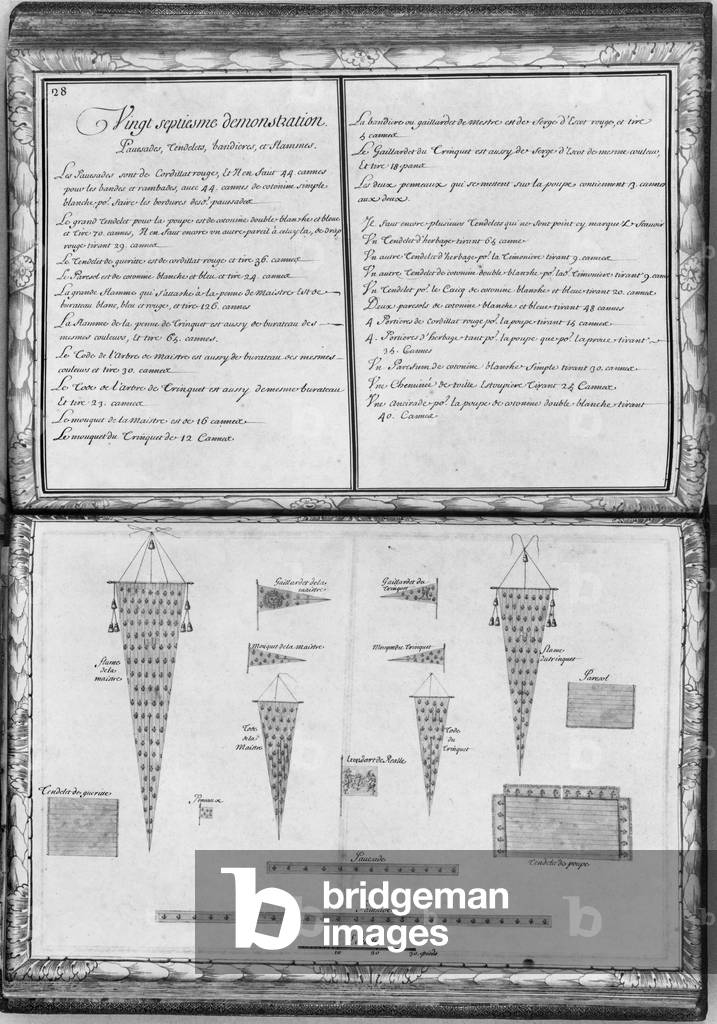 28
Vingt septiesme demonstration.
Pauesades, Tendelets, bandieres, et flammes.
Les Pauesades sont de Cordillat rouge, et Il en faut 44 cannes
pour les bandes et rambades, auec 44 cannes de cotonine simple
blanche po.r faire les bordures desd. pauesades
Le grand Tendelet pour la poupe est de cotonine double blanche et bleue
et tire 70. cannes, Il en faut encore vn autre pareil à celuy la, de drap
rouge tirant 29. cannes
Le Tendelet de guerite est de cordillat rouge et tire 36. cannes
Le Paresol est de cotonine blanche et bleu et tire 24. cannes
La grande flamme qui s'atache à la penne de Maistre Est de
burateau blanc, bleu et rouge, et tire 126. cannes
La flamme de la penne de Trinquet est aussy de burateau des
mesmes couleurs, Et tire 64.. cannes.
Le Tode de l'Arbre de Maistre est aussy de burateau des mesmes
couleurs et tire 30. cannes
Le Tode de l'arbre de Trinquet est aussy de mesme burateau
Et tire 23. cannes
Le mouquet de la Maistre est de 16 cannes
Le mouquet du Trinquet de 12 Cannes
La bandiere ou gaillardet de Mestre est de Serge d'Escot rouge, et tire
4 cannes
Le Gaillardet du Trinquet est aussy de Serge d'Escot de mesme couleur,
Et tire 18 pans
Les deux penneaux qui se mettent sur la poupe contiennent 13. cannes
aux deux.
Il faut encore plusieurs Tendelets qui ne sont point cy marqué Et Scauoir
Vn Tendelet d'herbage tirant 64 canne
Vn autre Tendelet d'herbage po.r la Timoniere tirant 9. cannes
Vn autre Tendelet de cotonine double blanche po.r lad. Timoniere tirant 9 cann
Vn Tendelet po.r le Caicq de cotonine blanche et bleue tirant 20. cannes
Deux paresols de cotonine blanche et bleue tirant 48 cannes
4 Portieres de Cordillat rouge po.r la poupe tirant 14 cannes
4. Portieres d'herbage tant po.r la poupe que po.r la proue tirant
34. Cannes
Vn Paristum de cotonine blanche Simple tirant 30. cannes
Vne Cheminée de toille Estoupiere Tirant 24 Cannes
Vne ancirade po.r la poupe de cotonine double blanche tirant
40. Cannes
flame
de la
maistre
Gaillardet de la
maistre
Gaillardet du
Trinquet
Mouquet de la Maistre
Mouquet du Trinquet
flame
du trinquet
Paresol
Tode
de la
Maistre
Tode
du
Trinquet
Estendart de Realle
Tendelet de guerite
Peneaux
Tendelet de poupe
Pauesade
10 20 30. pieds
b
bridgeman
images